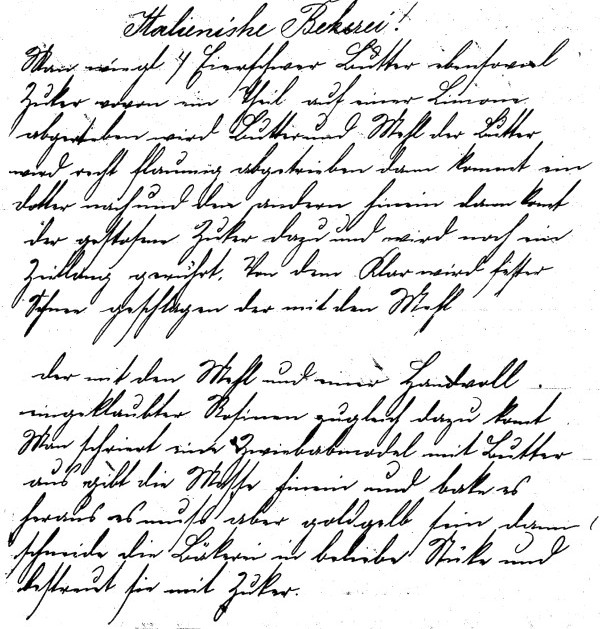 Italienishe Bekerei!
Man wiegt 4 Eierschwer Butter ebensovoel
Zuker wovon ein Theil auf einer Limone
abgerieben wird Butter und Mehl der Butter
wird recht flaumig abgetrieben dann kommt ein
dotter nach und den andern hinein dann komt
der gestosene Zuker dazu und wird noch ein
Zeitlang gerührt. Von dem Klar wird fester
Schnee geschlagen der mit den Mehl
der mit den Mehl und einer Handvoll
eingeklaubter Rosinen zugleich dazu komt
Man schmiert eine Zwiebakmodel mit Butter
aus gibt die Masse hinein und bake es
heraus es muss aber goldgelb sein dann
schneide die Bäkerei in beliebe Stüke und
bestreut sie mit Zuker.